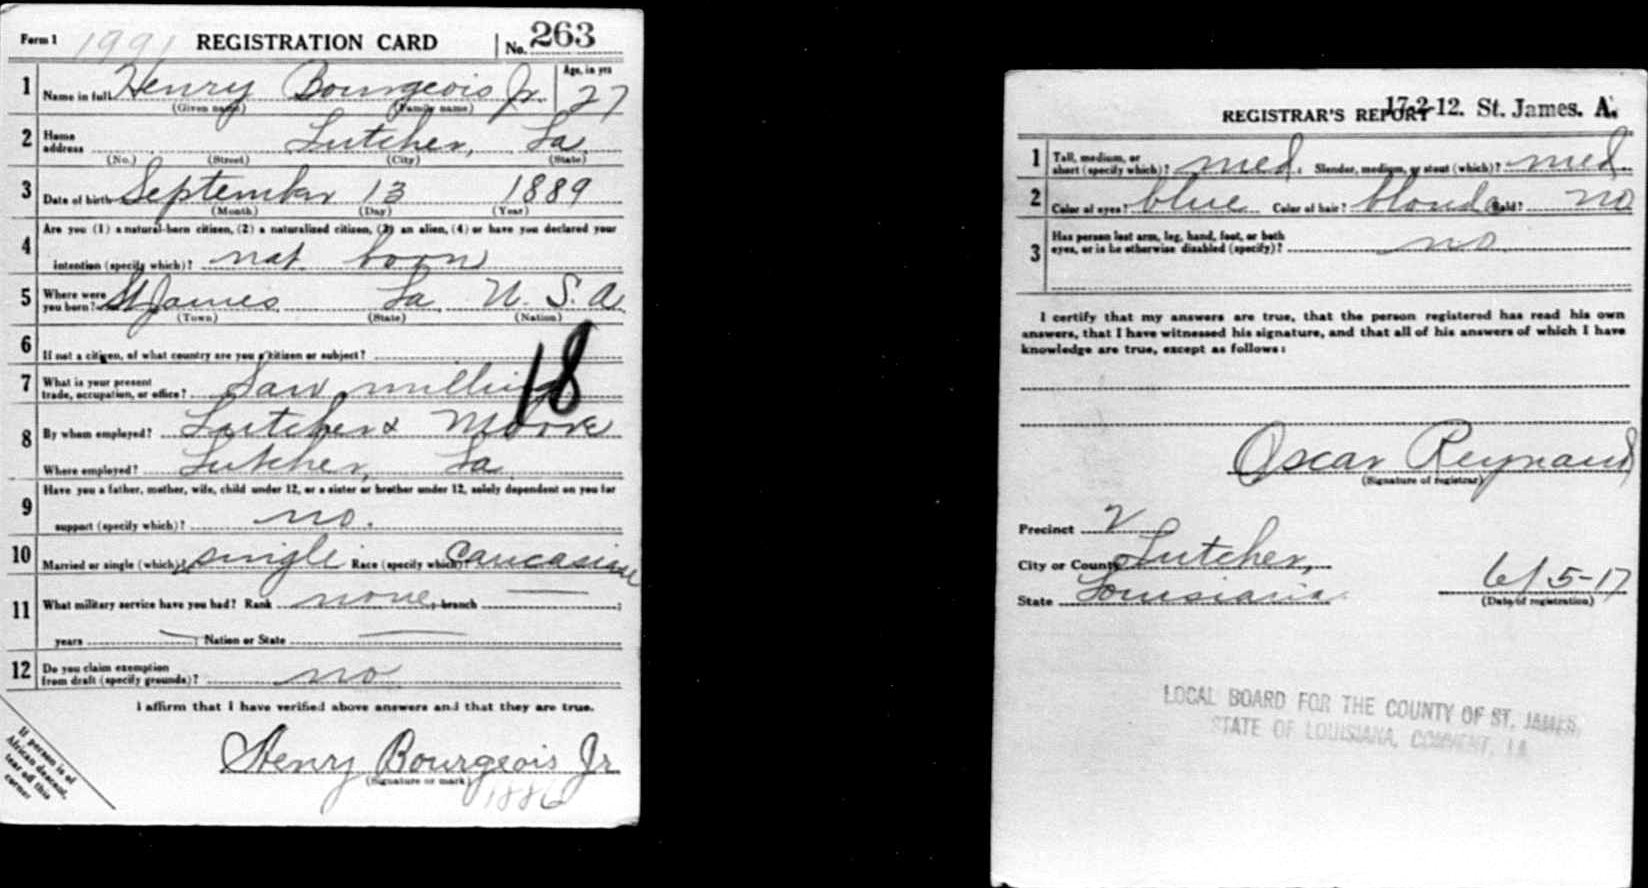 Form 1 1991 REGISTRATION CARD No. 263
1 Name in full Henry Bourgeois Jr. Age, in yrs 27
(Given name) (Family name)
2 Home address Lutcher, La
(No.) (Street) (City) (State)
3 Date of birth September 13 1889
(Month) (Day) (Year)
4 Are you (1) a natural-born citizen, (2) a naturalized citizen, (3) an alien, (4) or have you declared your
intention (specify which)? nat born
5 Where were you born? St James La U. S. A.
(Town) (State) (Nation)
6 If not a citizen, of what country are you a citizen or subject?
18
7 What is your present trade, occupation, or office? Saw milling
8 By whom employed? Lutcher & Moore
Where employed? Lutcher, La
9 Have you a father, mother, wife, child under 12, or a sister or brother under 12, solely dependent on you for
support (specify which)? no.
10 Married or single (which)? single Race (specify which)? Caucasian
11 What military service have you had? Rank none; branch ;
years ; Nation or State
12 Do you claim exemption from draft (specify grounds)? no
I affirm that I have verified above answers and that they are true.
Henry Bourgeois Jr
(Signature or mark)
1886
If person is of
African descent,
tear off this
corner
REGISTRAR'S REPORT 17-2-12. St. James. A.
1 Tall, medium, or short (specify which)? med. Slender, medium, or stout (which)? med
2 Color of eyes? blue Color of hair? blonde Bald? no
3 Has person lost arm, leg, hand, foot, or both
eyes, or is he otherwise disabled (specify)? no
I certify that my answers are true, that the person registered has read his own
answers, that I have witnessed his signature, and that all of his answers of which I have
knowledge are true, except as follows:
Oscar Reynaud
(Signature of registrar)
Precinct 2
City or County Lutcher,
State Louisiana 6/5-17
(Date of registration)
LOCAL BOARD FOR THE COUNTY OF ST. JAMES,
STATE OF LOUISIANA, CONVENT, LA.